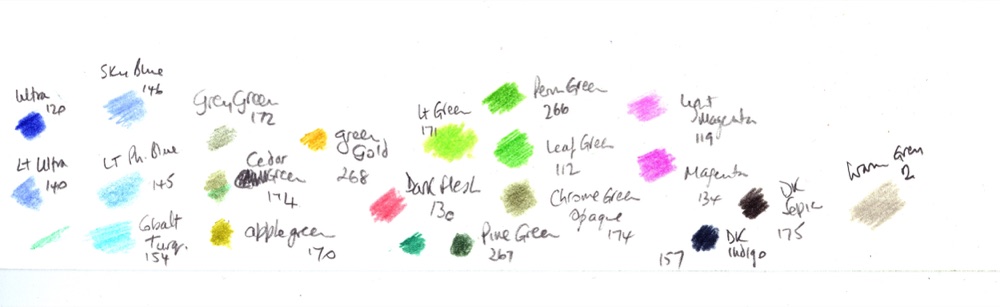 Ultra
120
Sky Blue
146
Lt Ultra
140
LT Ph. Blue
145
Cobalt
Turq.
154
Grey Green
172
Cedar
Green
174
apple green
170
green
Gold
268
Lt Green
171
Dark flesh
130
Perm Green
266
Leaf Green
112
Chrome Green
Opaque
174
Pine Green
267
Light
Magenta
119
Magenta
134
157
DK
Indigo
DK
Sepia
175
Warm Grey
2